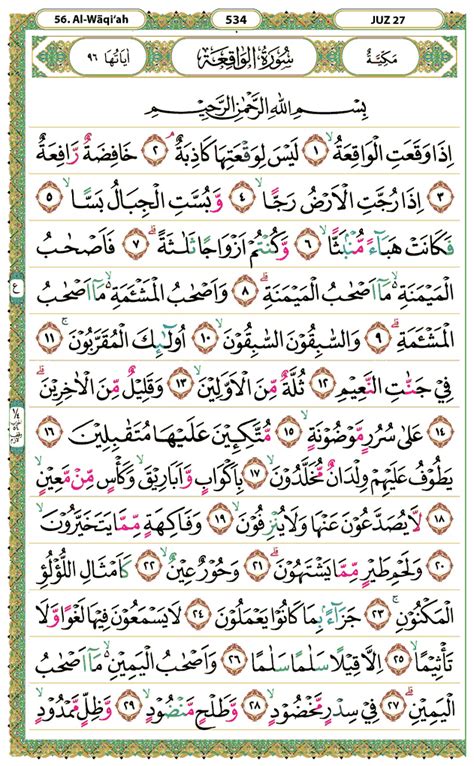 56. Al-Wāqi‘ah 534 JUZ 27
مَكِيَّةٌ سُوْرَةُ الْوَاقِعَةِ اٰيَاتُهَا ٩٦
بِسْمِ اللّٰهِ الرَّحْمٰنِ الرَّحِيْمِ
اِذَا وَقَعَتِ الْوَاقِعَةُۙ ١ لَيْسَ لِوَقْعَتِهَا كَاذِبَةٌۘ ٢ خَافِضَةٌ رَّافِعَةٌ
٣ اِذَا رُجَّتِ الْاَرْضُ رَجًّاۙ ٤ وَّبُسَّتِ الْجِبَالُ بَسًّاۙ ٥
فَكَانَتْ هَبَاۤءً مُّنْۢبَثًّاۙ ٦ وَّكُنْتُمْ اَزْوَاجًا ثَلٰثَةًۗ ٧ فَاَصْحٰبُ
الْمَيْمَنَةِ ەۙ مَآ اَصْحٰبُ الْمَيْمَنَةِۗ ٨ وَاَصْحٰبُ الْمَشْـَٔمَةِ ەۙ مَآ اَصْحٰبُ
الْمَشْـَٔمَةِۗ ٩ وَالسّٰبِقُوْنَ السّٰبِقُوْنَۙ ١٠ اُولٰۤىِٕكَ الْمُقَرَّبُوْنَۚ ١١
فِيْ جَنّٰتِ النَّعِيْمِ ١٢ ثُلَّةٌ مِّنَ الْاَوَّلِيْنَۙ ١٣ وَقَلِيْلٌ مِّنَ الْاٰخِرِيْنَۗ
١٤ عَلٰى سُرُرٍ مَّوْضُوْنَةٍۙ ١٥ مُّتَّكِـِٕيْنَ عَلَيْهَا مُتَقٰبِلِيْنَ ١٦
يَطُوْفُ عَلَيْهِمْ وِلْدَانٌ مُّخَلَّدُوْنَۙ ١٧ بِاَكْوَابٍ وَّاَبَارِيْقَۙ وَكَأْسٍ مِّنْ مَّعِيْنٍۙ
١٨ لَّا يُصَدَّعُوْنَ عَنْهَا وَلَا يُنْزِفُوْنَۙ ١٩ وَفَاكِهَةٍ مِّمَّا يَتَخَيَّرُوْنَۙ
٢٠ وَلَحْمِ طَيْرٍ مِّمَّا يَشْتَهُوْنَۗ ٢١ وَحُوْرٌ عِيْنٌۙ ٢٢ كَاَمْثَالِ اللُّؤْلُؤِ
الْمَكْنُوْنِۚ ٢٣ جَزَاۤءًۢ بِمَا كَانُوْا يَعْمَلُوْنَ ٢٤ لَا يَسْمَعُوْنَ فِيْهَا لَغْوًا وَّلَا
تَأْثِيْمًاۙ ٢٥ اِلَّا قِيْلًا سَلٰمًا سَلٰمًا ٢٦ وَاَصْحٰبُ الْيَمِيْنِ ەۙ مَآ اَصْحٰبُ
الْيَمِيْنِۗ ٢٧ فِيْ سِدْرٍ مَّخْضُوْدٍۙ ٢٨ وَّطَلْحٍ مَّنْضُوْدٍۙ ٢٩ وَّظِلٍّ مَّمْدُوْدٍۙ
ع